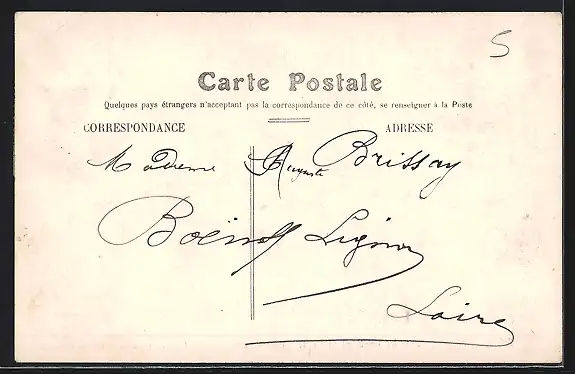 5
Carte Postale
Quelques pays étrangers n'acceptant pas la correspondance de ce côté, se renseigner à la Poste
CORRESPONDANCE
ADRESSE
Madame Auguste Brissay
Loire